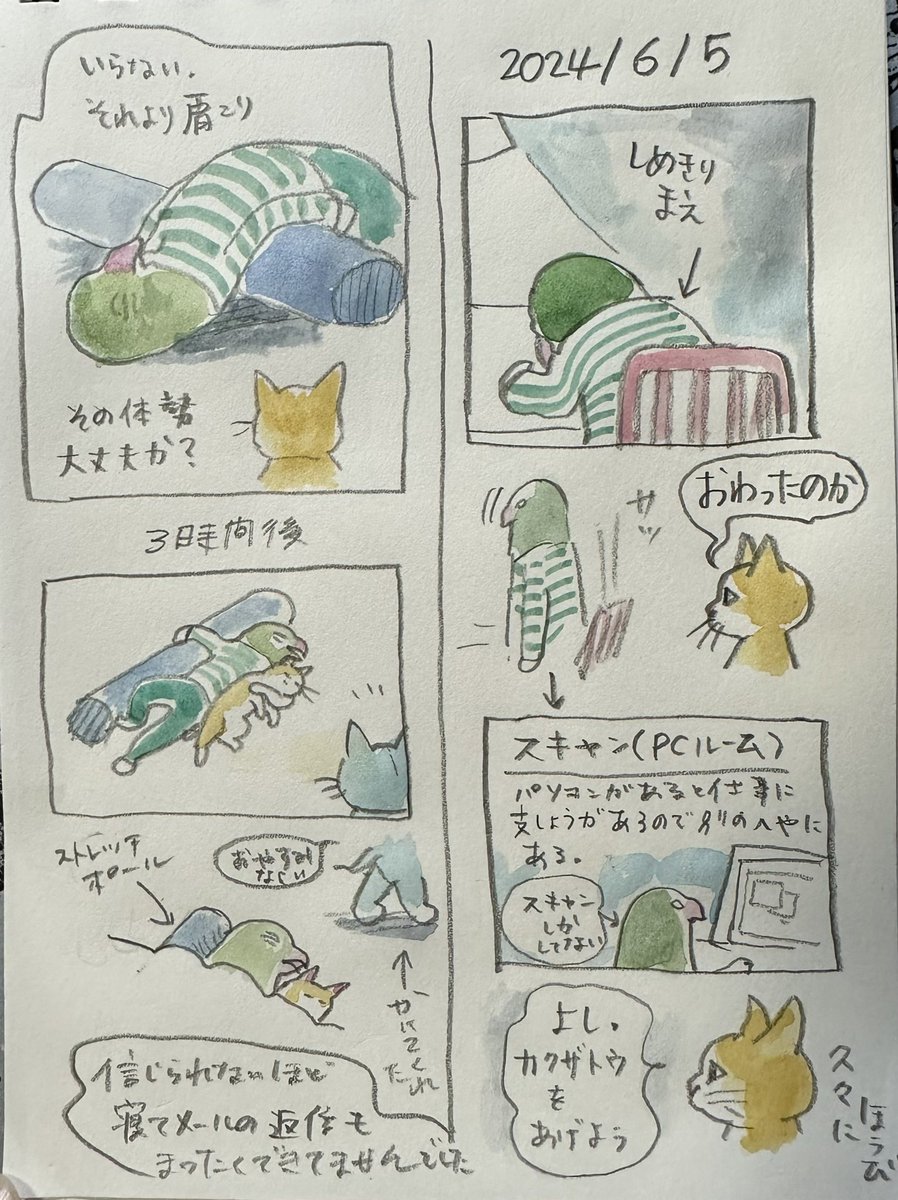 2024/6/5
しめきり
まえ
おわったのか
サッ
スキャン(PCルーム)
パソコンがあると仕事に
支しょうがあるので別のへやに
ある。
スキャン
しか
してない
よし。
カクザトウ
を
あげよう
久々に
ほうび
いらない。
それより肩こり
その体勢
大丈夫か?
3時間後
ストレッチ
ポール
おやすみ
なさい
信じられないほど
寝てメールの返信も
まったくできてませんでした